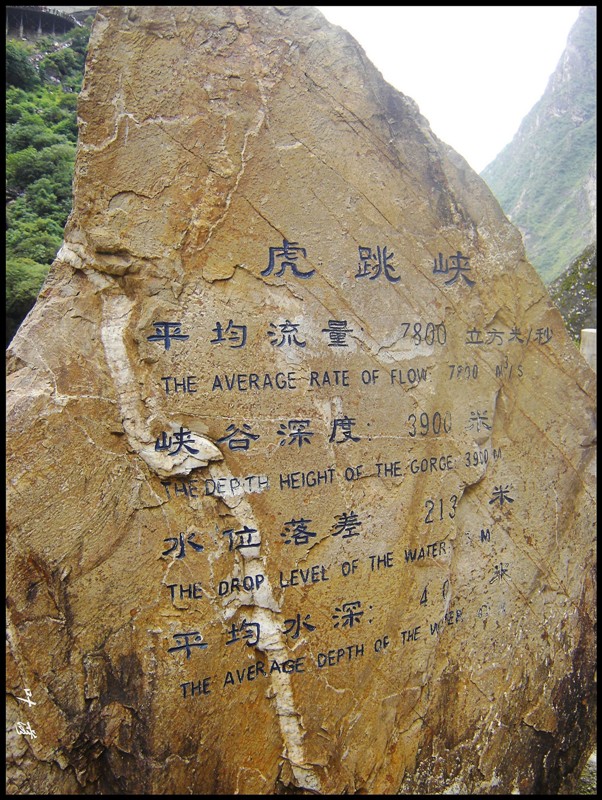 虎跳峡
平均流量 7800 立方米/秒
THE AVERAGE RATE OF FLOW: 7800 M³/S
峡谷深度: 3900 米
THE DEPTH HEIGHT OF THE GORGE: 3900 M
水位落差: 213 米
THE DROP LEVEL OF THE WATER: M
平均水深: 米
THE AVERAGE DEPTH OF THE WATER: